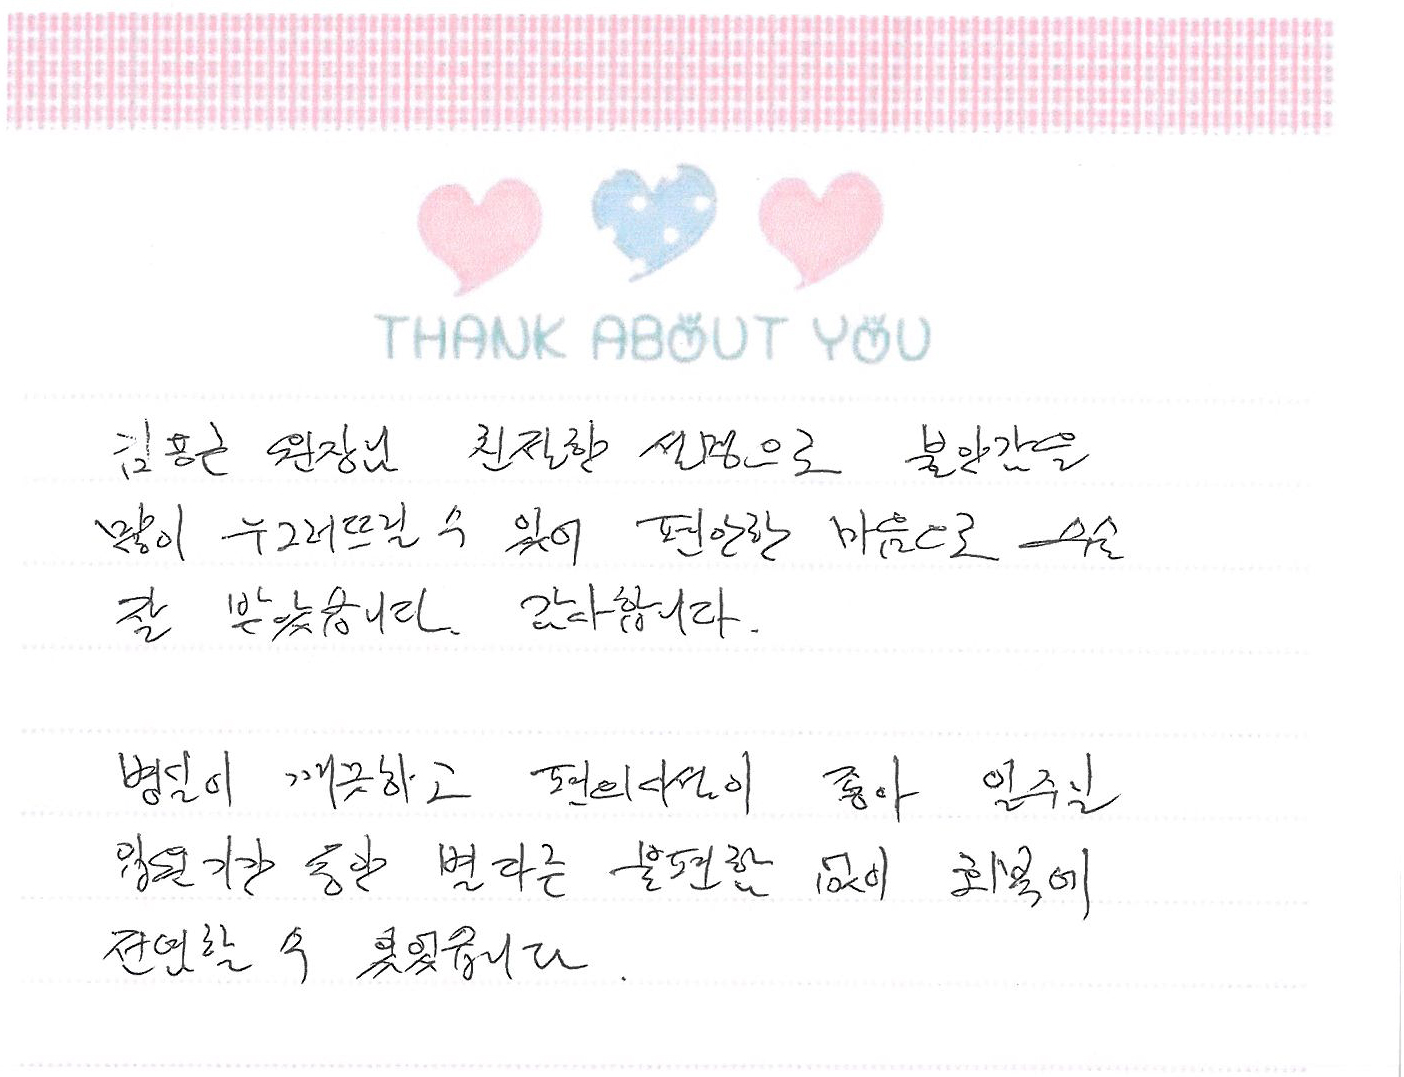 THANK ABOUT YOU
김용근 원장님 친절한 설명으로 불안감을
많이 누그러뜨릴 수 있어 편안한 마음으로 수술
잘 받았습니다. 감사합니다.
병실이 깨끗하고 편의시설이 좋아 일주일
입원기간 동안 별다른 불편함 없이 회복에
전념할 수 있었습니다.